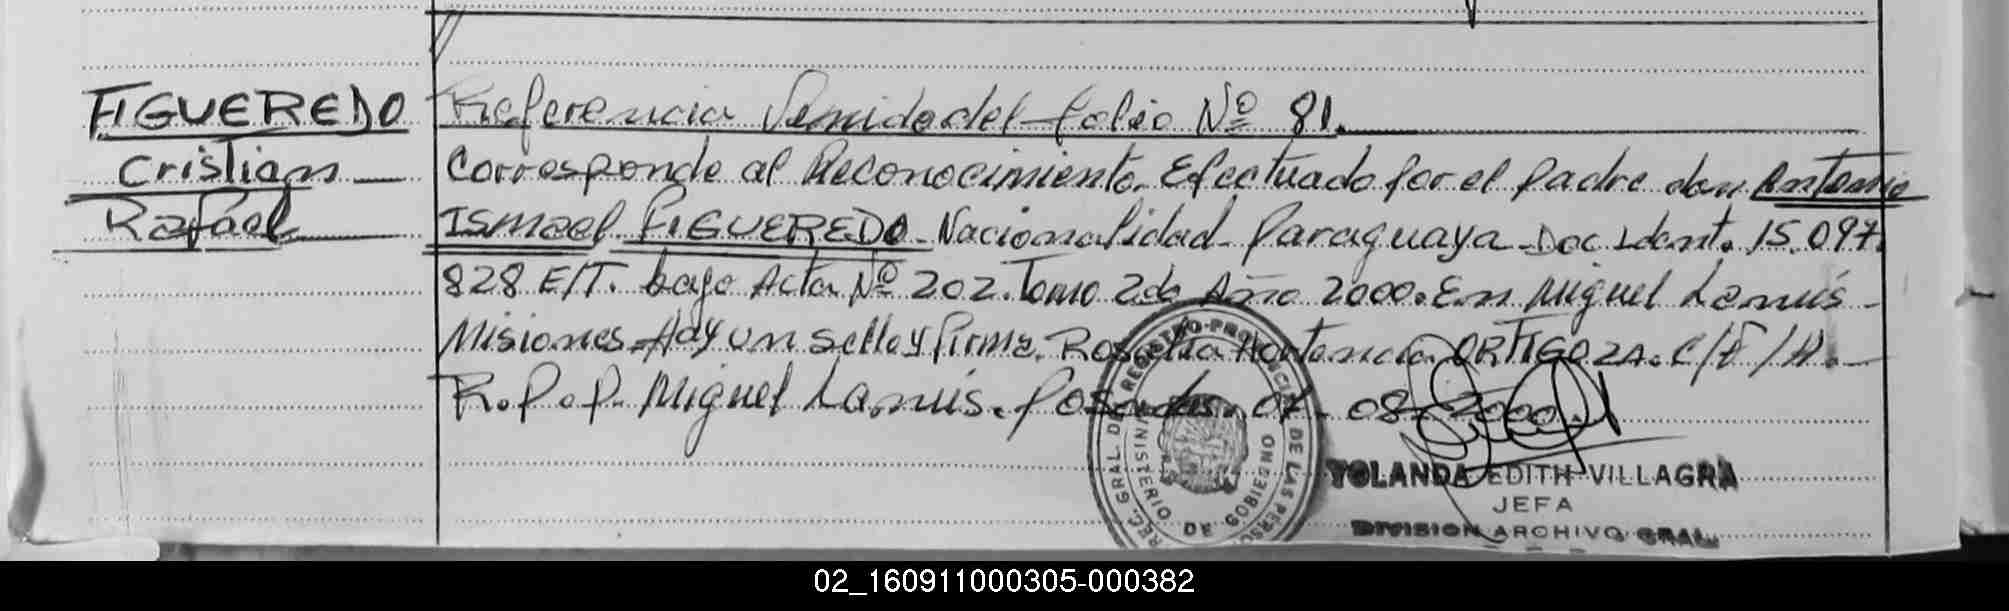 FIGUEREDO
Cristian
Rafael
Referencia Venida del folio Nº 81.
Corresponde al Reconocimiento. Efectuado por el padre don Antonio
Ismael FIGUEREDO. Nacionalidad Paraguaya. Doc Ident. 15.097.
828 E/T. bajo Acta Nº 202. Tomo 2do Año 2000. En Miguel Lanús
Misiones. Hay un sello y firma. Hortencia ORTIGOZA. C/E/H.
R.P.P. Miguel Lanús. Posadas. 07-08-2000.
REG. GRAL. DE REGISTRO PROVINCIAL DE LAS PERSO
MINISTERIO DE GOBIERNO
YOLANDA EDITH VILLAGRA
JEFA
DIVISION ARCHIVO GRAL.
02_160911000305-000382